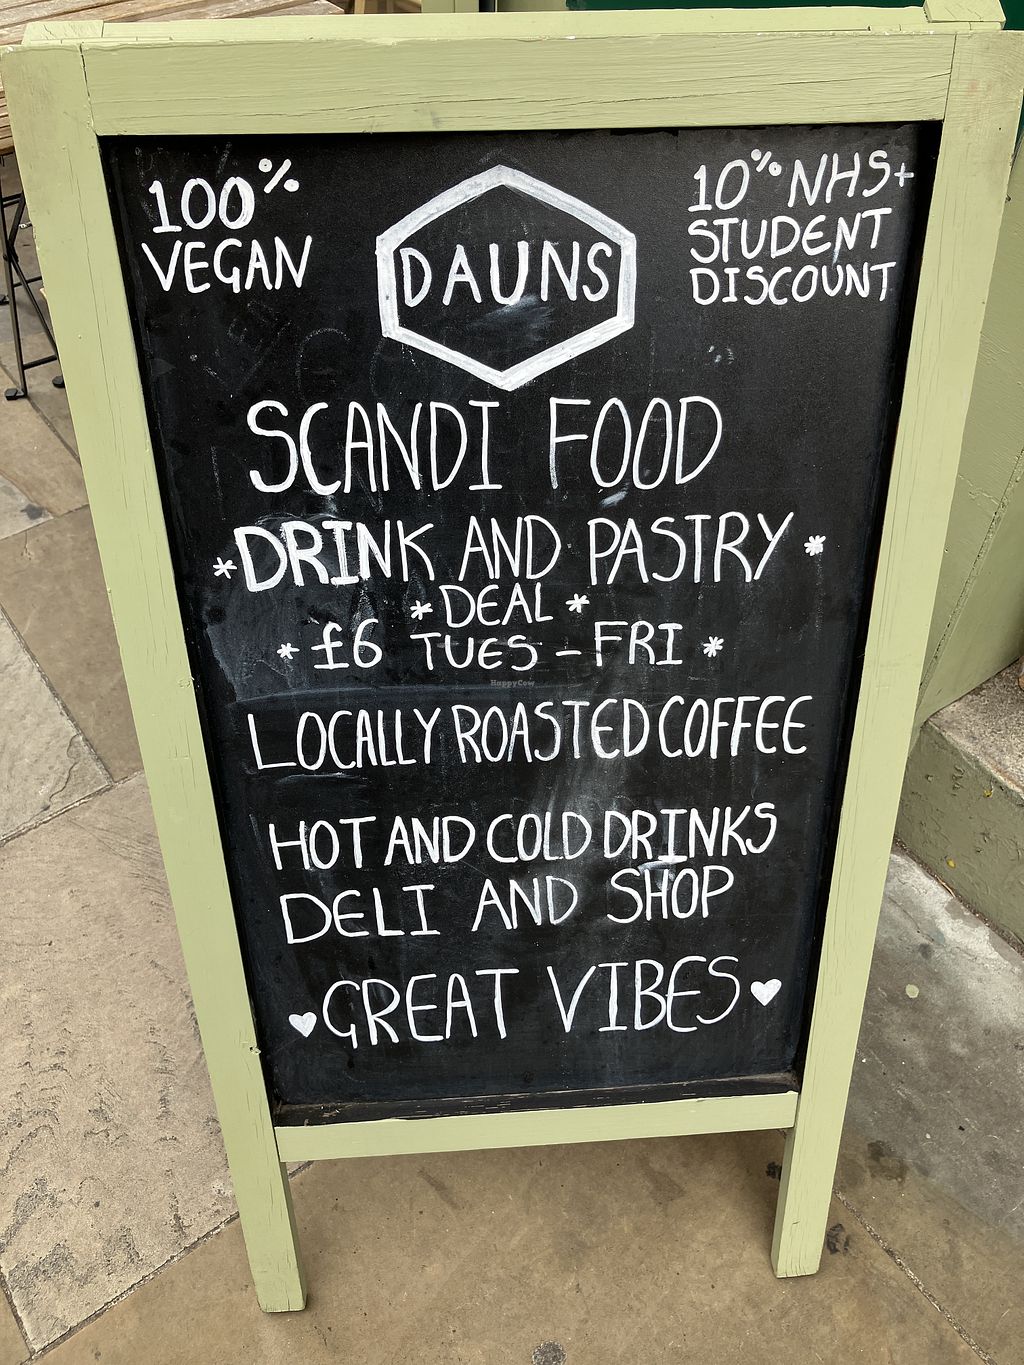 100%
VEGAN
DAUNS
10% NHS+
STUDENT
DISCOUNT
SCANDI FOOD
*DRINK AND PASTRY*
*DEAL*
*£6 TUES - FRI*
HappyCow
LOCALLY ROASTED COFFEE
HOT AND COLD DRINKS
DELI AND SHOP
♥GREAT VIBES♥